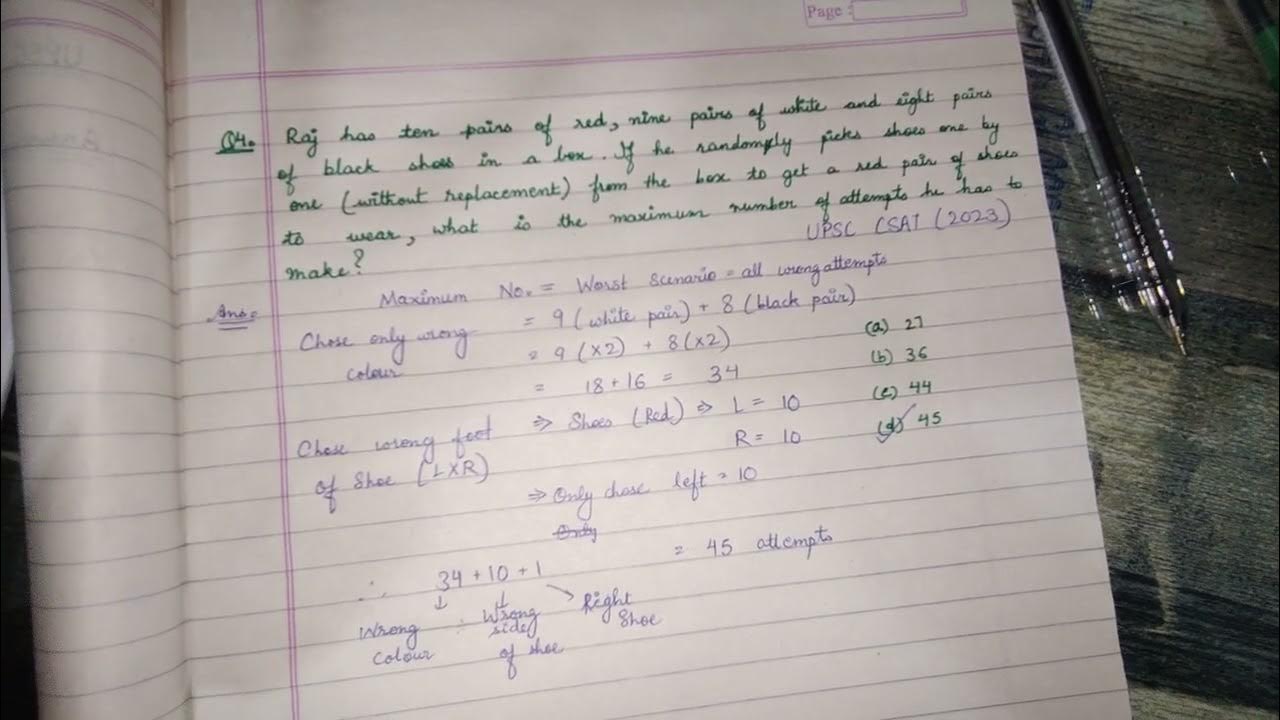 Page :
Q4. Raj has ten pairs of red, nine pairs of white and eight pairs
of black shoes in a box. If he randomply picks shoes one by
one (without replacement) from the box to get a red pair of shoes
to wear, what is the maximum number of attempts he has to
make?
UPSC CSAT (2023)
Ans:
Maximum No. = Worst Scenario = all wrong attempts
Chose only wrong colour
= 9 (white pair) + 8 (black pair)
= 9 (x2) + 8 (x2)
= 18 + 16 = 34
(a) 27
(b) 36
(c) 44
(d) 45
Chose wrong foot of Shoe (LXR)
⇒ Shoes (Red) ⇒ L = 10
R = 10
⇒ Only chose left = 10
Only
∴ 34 + 10 + 1 = 45 attempts
↓ ↓ ↘
Wrong colour
Wrong side of shoe
Right Shoe